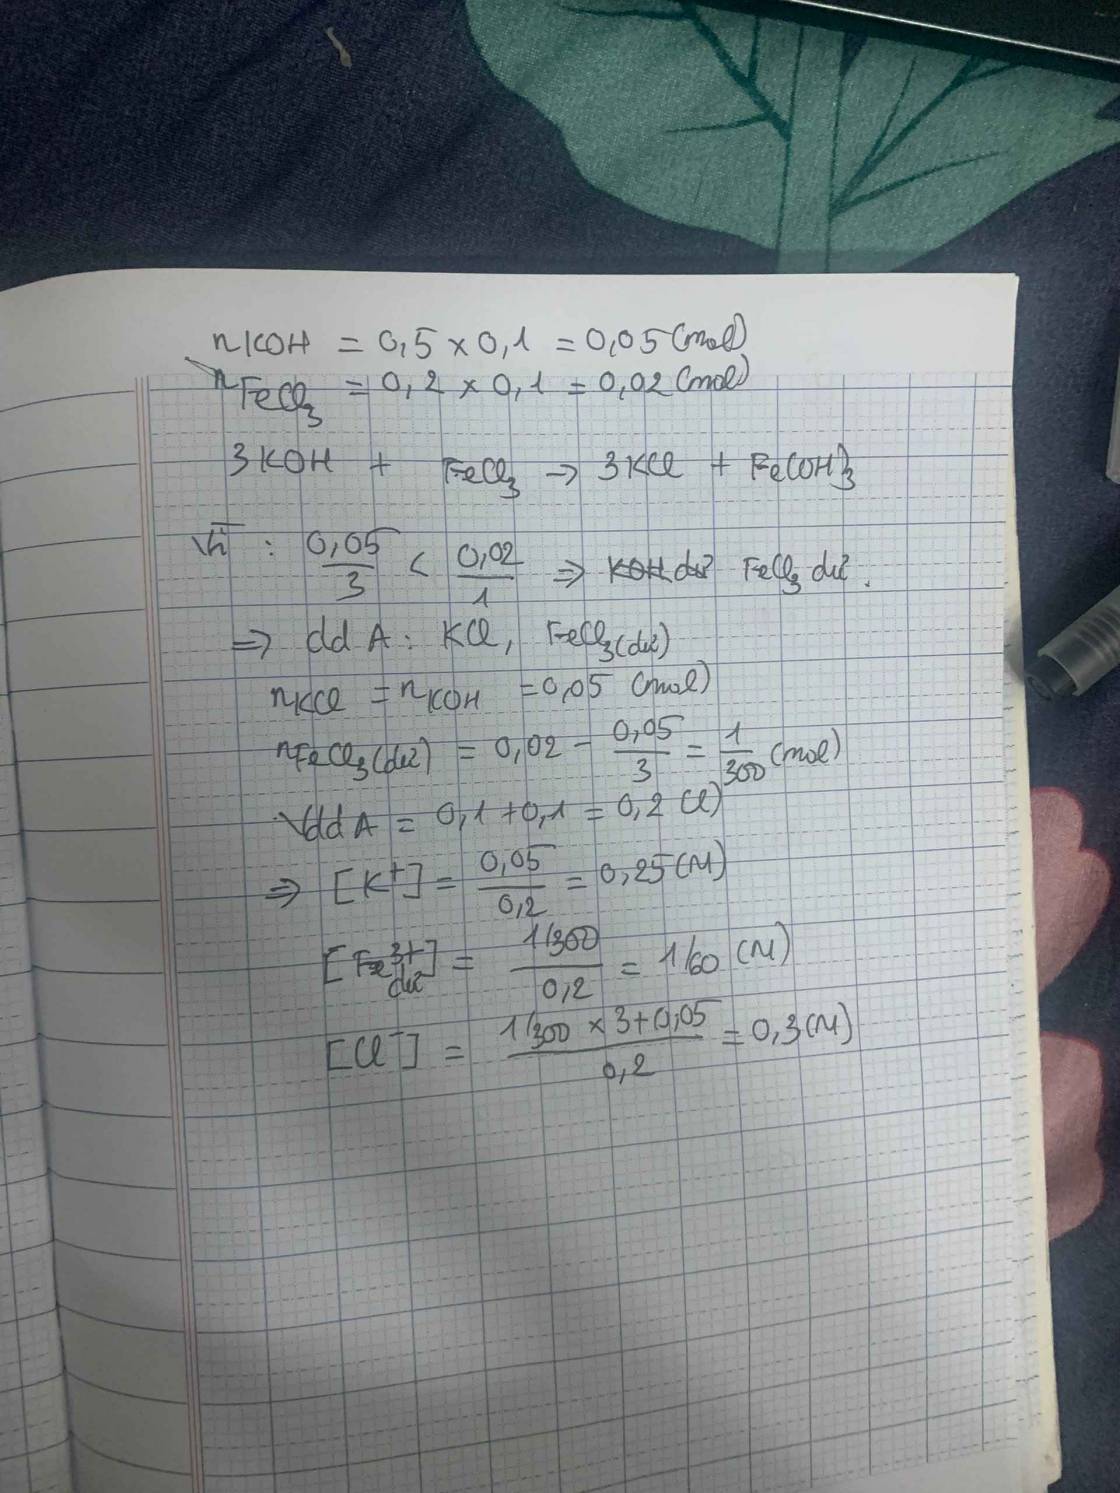 nKOH = 0,5 × 0,1 = 0,05 (mol)
nFeCl₃ = 0,2 × 0,1 = 0,02 (mol)
3KOH + FeCl₃ → 3KCl + Fe(OH)₃
Vì : 0,05/3 < 0,02/1 ⇒ KOH dư FeCl₃ dư.
⇒ dd A : KCl, FeCl₃ (dư)
nKCl = nKOH = 0,05 (mol)
nFeCl₃ (dư) = 0,02 - 0,05/3 = 1/300 (mol)
Vdd A = 0,1 + 0,1 = 0,2 (l)
⇒ [K⁺] = 0,05/0,2 = 0,25 (M)
[Fe³⁺ dư] = (1/300)/0,2 = 1/60 (M)
[Cl⁻] = (1/300 × 3 + 0,05)/0,2 = 0,3 (M)